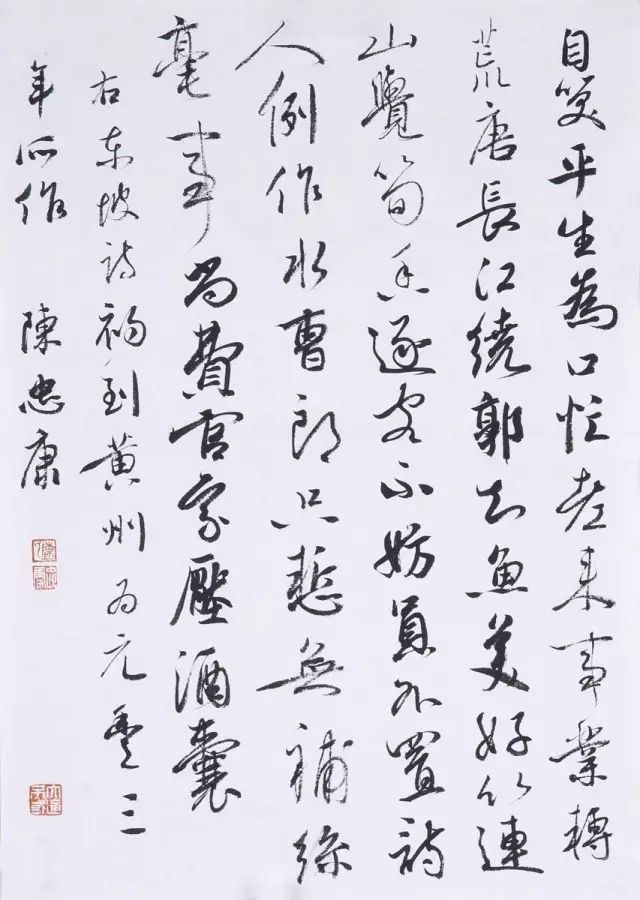 自笑平生為口忙老来事業轉
荒唐長江繞郭知魚美好竹連
山覺筍香逐客不妨員外置詩
人例作水曹郎只慙無補絲
毫事尚費官家壓酒囊
右東坡詩初到黄州為元豐三
年所作 陳忠康